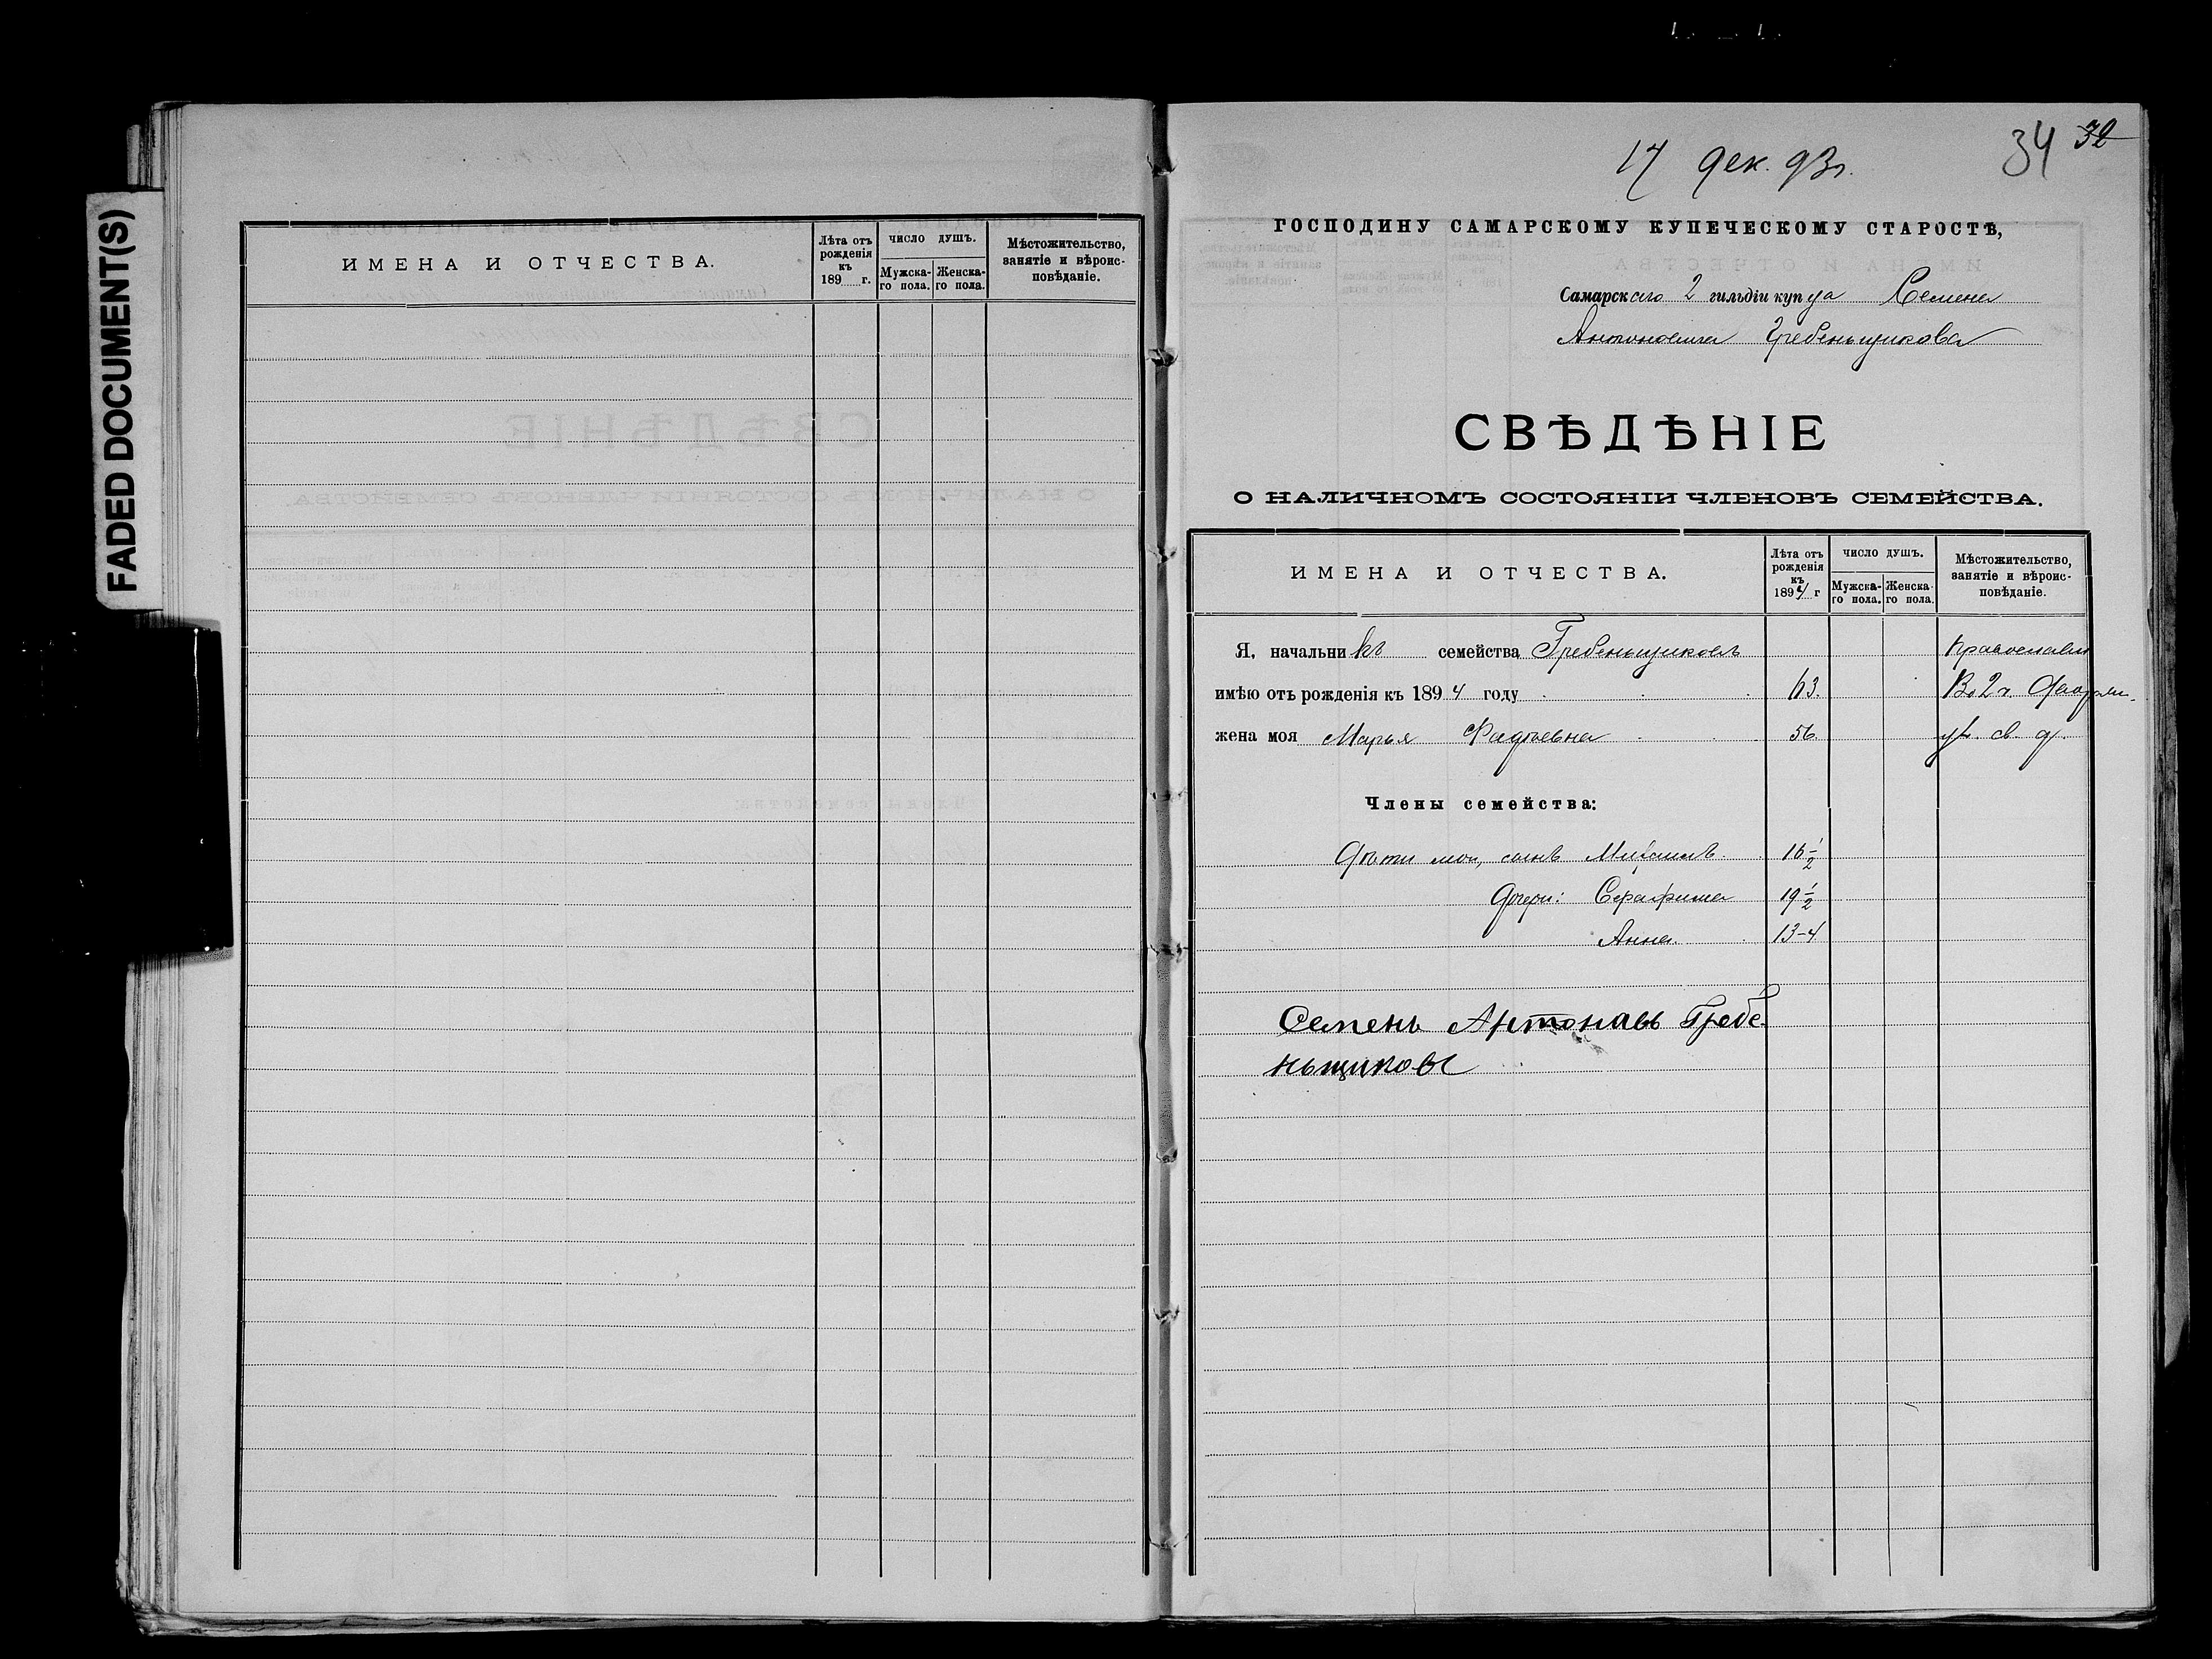 FADED DOCUMENT(S)
ИМЕНА И ОТЧЕСТВА.
Лѣта отъ рожденія къ 189 г.
ЧИСЛО ДУШЪ.
Мужска-го пола.
Женска-го пола.
Мѣстожительство, занятіе и вѣроис-повѣданіе.
34 32
17 дек. 93 г.
ГОСПОДИНУ САМАРСКОМУ КУПЕЧЕСКОМУ СТАРОСТѢ,
Самарскаго 2 гильдіи купца Семена
Антоновича Гребеньщикова
СВѢДѢНІЕ
О НАЛИЧНОМЪ СОСТОЯНІИ ЧЛЕНОВЪ СЕМЕЙСТВА.
ИМЕНА И ОТЧЕСТВА.
Лѣта отъ рожденія къ 1894 г
ЧИСЛО ДУШЪ.
Мужска-го пола.
Женска го пола.
Мѣстожительство, занятіе и вѣроис-повѣданіе.
Я, начальникъ семейства Гребеньщиковъ
имѣю отъ рожденія къ 1894 году 63. Во 2 ч.
жена моя Марья 56. ул. св. д.
Члены семейства:
Дѣти мои, сынъ Михаилъ. 16 1/2
Дочери: Серафима 19 1/2
Анна. 13-4
Семенъ Антонавъ Гребе
ньщиковъ